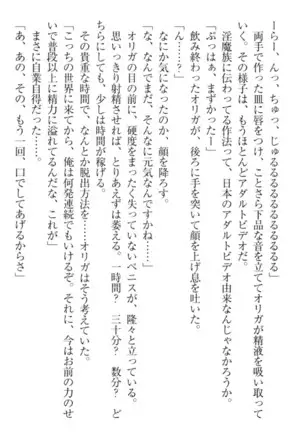 ーらー、んっ、ちゅっ、じゅるるるるるるるるるるるるる」
両手で作った皿に唇をつけ、ことさら下品な音を立ててオリガが精液を吸い取って
いく。その様子は、もうほとんどアダルトビデオだ。
淫魔族に伝わってる作法って、日本のアダルトビデオ由来なんじゃなかろうか。
「ぷっはぁ、まずかったー」
飲み終わったオリガが、後ろに手を突いて顔を上げ息を吐いた。
「ん……？」
なにか気になったのか、顔を降ろす。
「な、なんでまだ、そんなに元気なんですかね……」
オリガの目の前に、硬度をまったく失っていないペニスが、隆々と立っている。
思いっきり射精させれば、とりあえずは萎える。一時間？　三十分？　数分？　ど
ちらにしても、少しは時間が稼げる。
その貴重な時間で、なんとか脱出方法を――オリガはそう考えてたのだ。
「こっちの世界に来てから、俺は何発連続でもいけるぞ。それに、今はお前の力のせ
いで普段以上に精力に溢れてるんだな、これが」
まさに自業自得だった……。
「あ、あの、その、もう一回、口でしてあげるからさ」